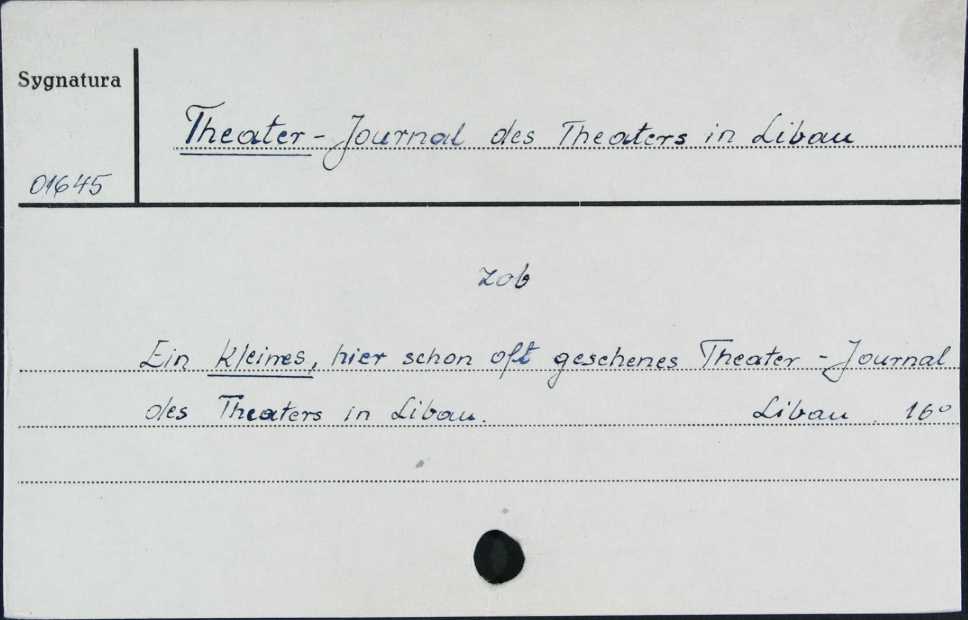 Sygnatura
Theater-Journal des Theaters in Libau
01645
zob
Ein kleines, hier schon oft geschenes Theater-Journal
des Theaters in Libau. Libau. 16°